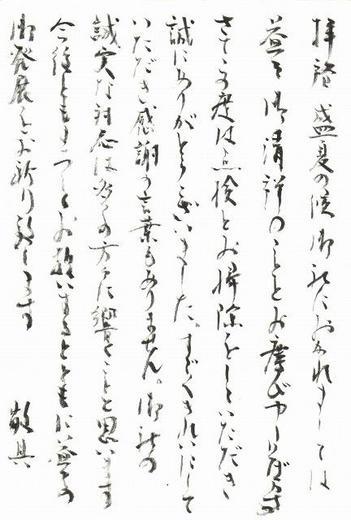 拝啓 盛夏の候 御社におかれましては
益々御清祥のこととお慶び申し上げます
さて この度は点検とお掃除をしていただき
誠にありがとうございました。すごくきれいにして
いただき感謝の言葉もありません。御社の
誠実な対応は多くの方々に響くことと思います
今後ともよろしくお願いするとともに 益々の
御発展をお祈り致します
敬具